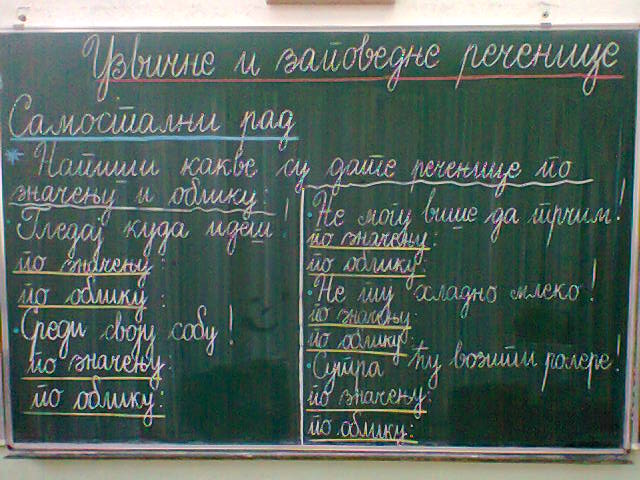 Узвичне и заповедне реченице
Самостални рад
* Напиши какве су дате реченице по
значењу и облику:
• Гледај куда идеш!
по значењу:
по облику:
• Среди своју собу!
по значењу:
по облику:
• Не могу више да трчим!
по значењу:
по облику:
• Не пију хладно млеко!
по значењу:
по облику:
• Сутра ћу возити ролере!
по значењу:
по облику: